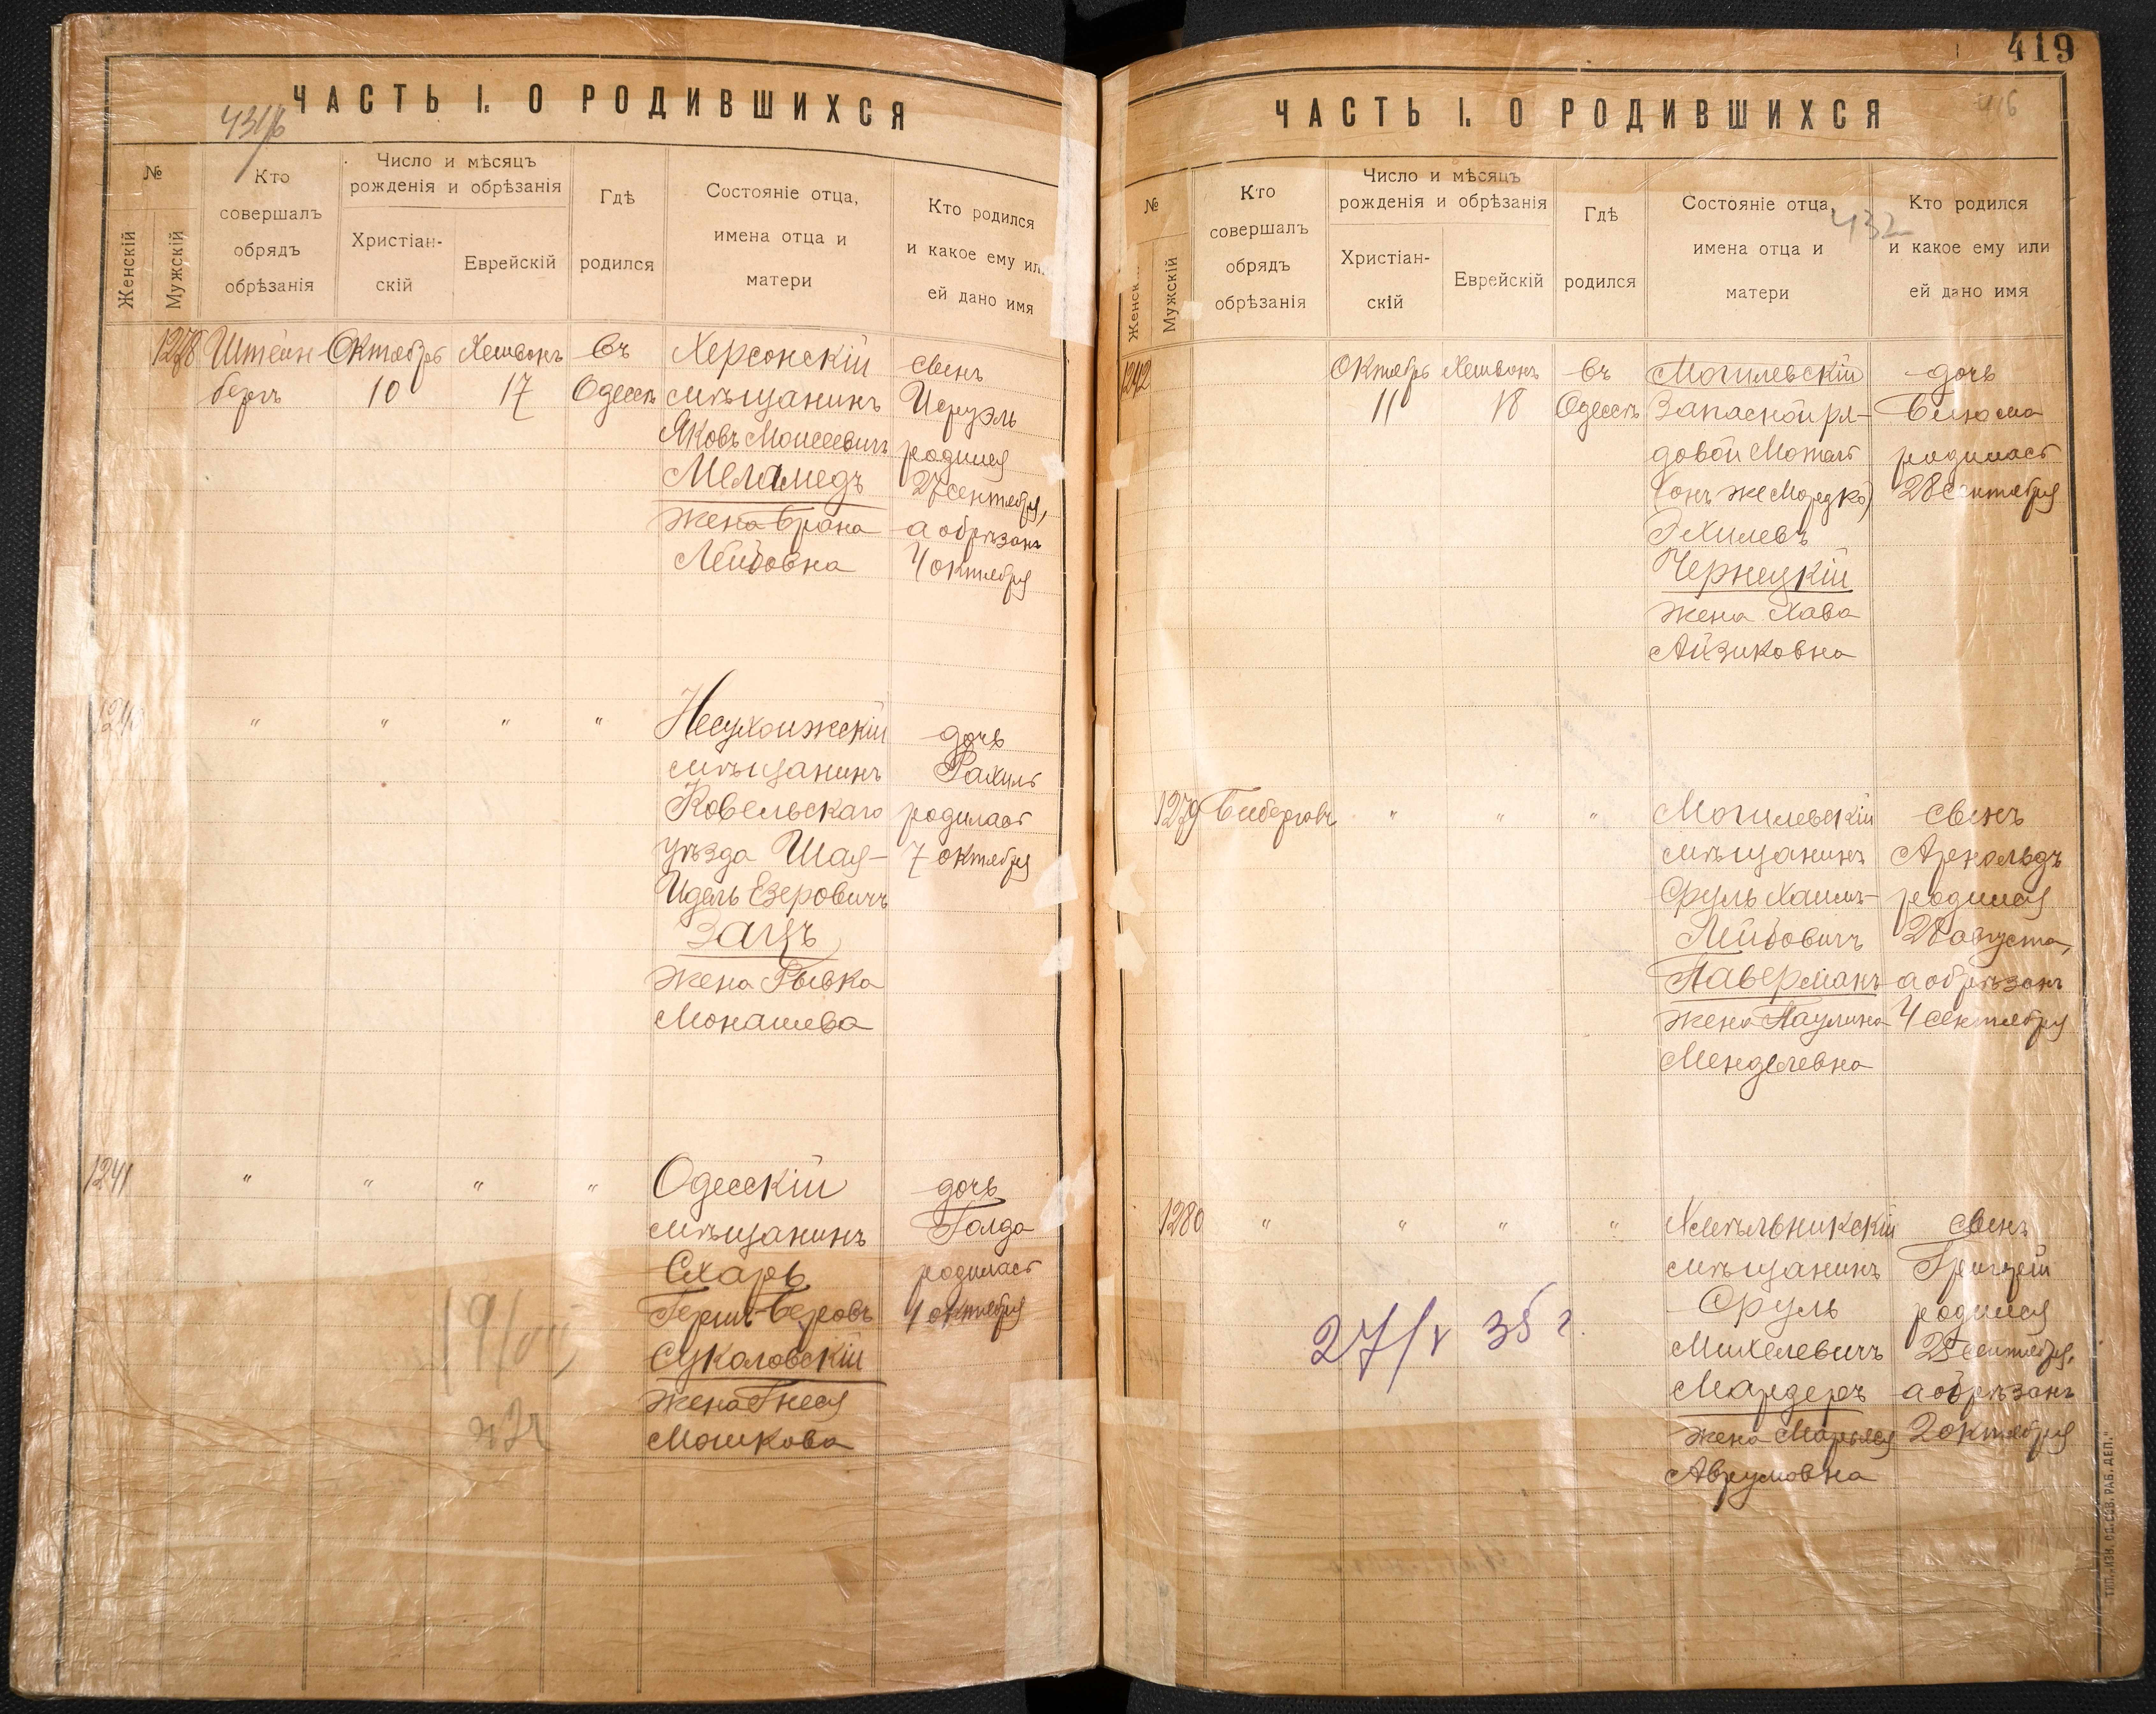 ЧАСТЬ I. О РОДИВШИХСЯ
№
Женскій
Мужскій
Кто
совершалъ
обрядъ
обрѣзанія
Число и мѣсяцъ
рожденія и обрѣзанія
Христіан-
скій
Еврейскій
Гдѣ
родился
Состояніе отца,
имена отца и
матери
Кто родился
и какое ему или
ей дано имя
1278
Штейн-
бергъ
Октябрь
10
Хешванъ
17
въ
Одессѣ
Херсонскій
мѣщанинъ
Яковъ Моисеевичъ
Меламедъ
жена Брана
Лейбовна
сынъ
Исруэль
родился
27 сентября,
а обрѣзанъ
4 октября
1240
" " " "
Несухоижскій
мѣщанинъ
Ковельскаго
уѣзда Шая-
Идель Езеровичъ
Зацъ
жена Рывка
Монашева
дочь
Рахиль
родилась
7 октября
1241
" " " "
Одесскій
мѣщанинъ
Схарь
Герш-Беровъ
Сукаловскій
жена Гнеся
Мошкова
дочь
Голда
родилась
1 октября
419
416
ЧАСТЬ I. О РОДИВШИХСЯ
432
№
Женскій
Мужскій
Кто
совершалъ
обрядъ
обрѣзанія
Число и мѣсяцъ
рожденія и обрѣзанія
Христіан-
скій
Еврейскій
Гдѣ
родился
Состояніе отца,
имена отца и
матери
Кто родился
и какое ему или
ей дано имя
1242
Октябрь
11
Хешванъ
18
въ
Одессѣ
Могилевскій
Запасной ря-
довой Мотель
(онъ же Мордко)
Эхилевъ
Чернецкій
жена Хава
Айзиковна
дочь
Блюма
родилась
28 сентября
1279
Биберговъ
" " "
Могилевскій
мѣщанинъ
Сруль Хаимъ-
Лейбовичъ
Паверманъ
жена Паулина
Менделевна
сынъ
Арнольдъ
родился
28 августа,
а обрѣзанъ
4 сентября
1280
" " " "
Хмѣльникскій
мѣщанинъ
Сруль
Михелевичъ
Мардеръ
жена Марьяся
Аврумовна
сынъ
Григорій
родился
25 сентября,
а обрѣзанъ
2 октября
27/V 35 г.
ТИП. „ИЗВ. ОД. СОВ. РАБ. ДЕП."